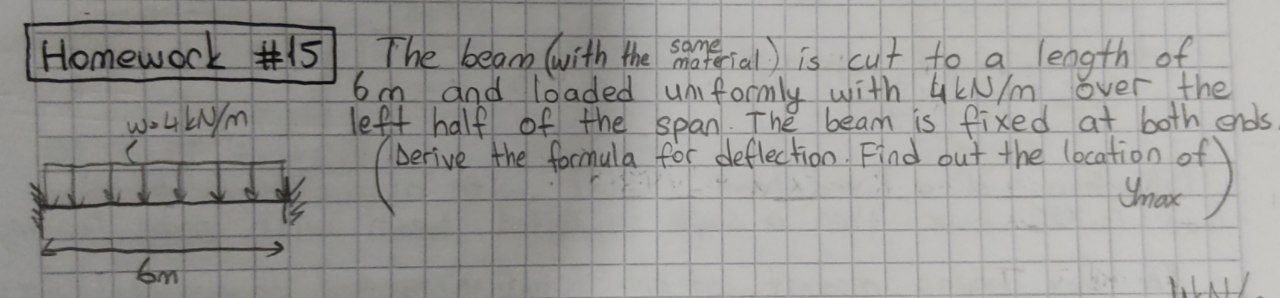 Homework #15
The beam (with the same material) is cut to a length of
6m and loaded uniformly with 4kN/m over the
left half of the span. The beam is fixed at both ends.
(Derive the formula for deflection. Find out the location of
ymax)
w=4kN/m
6m